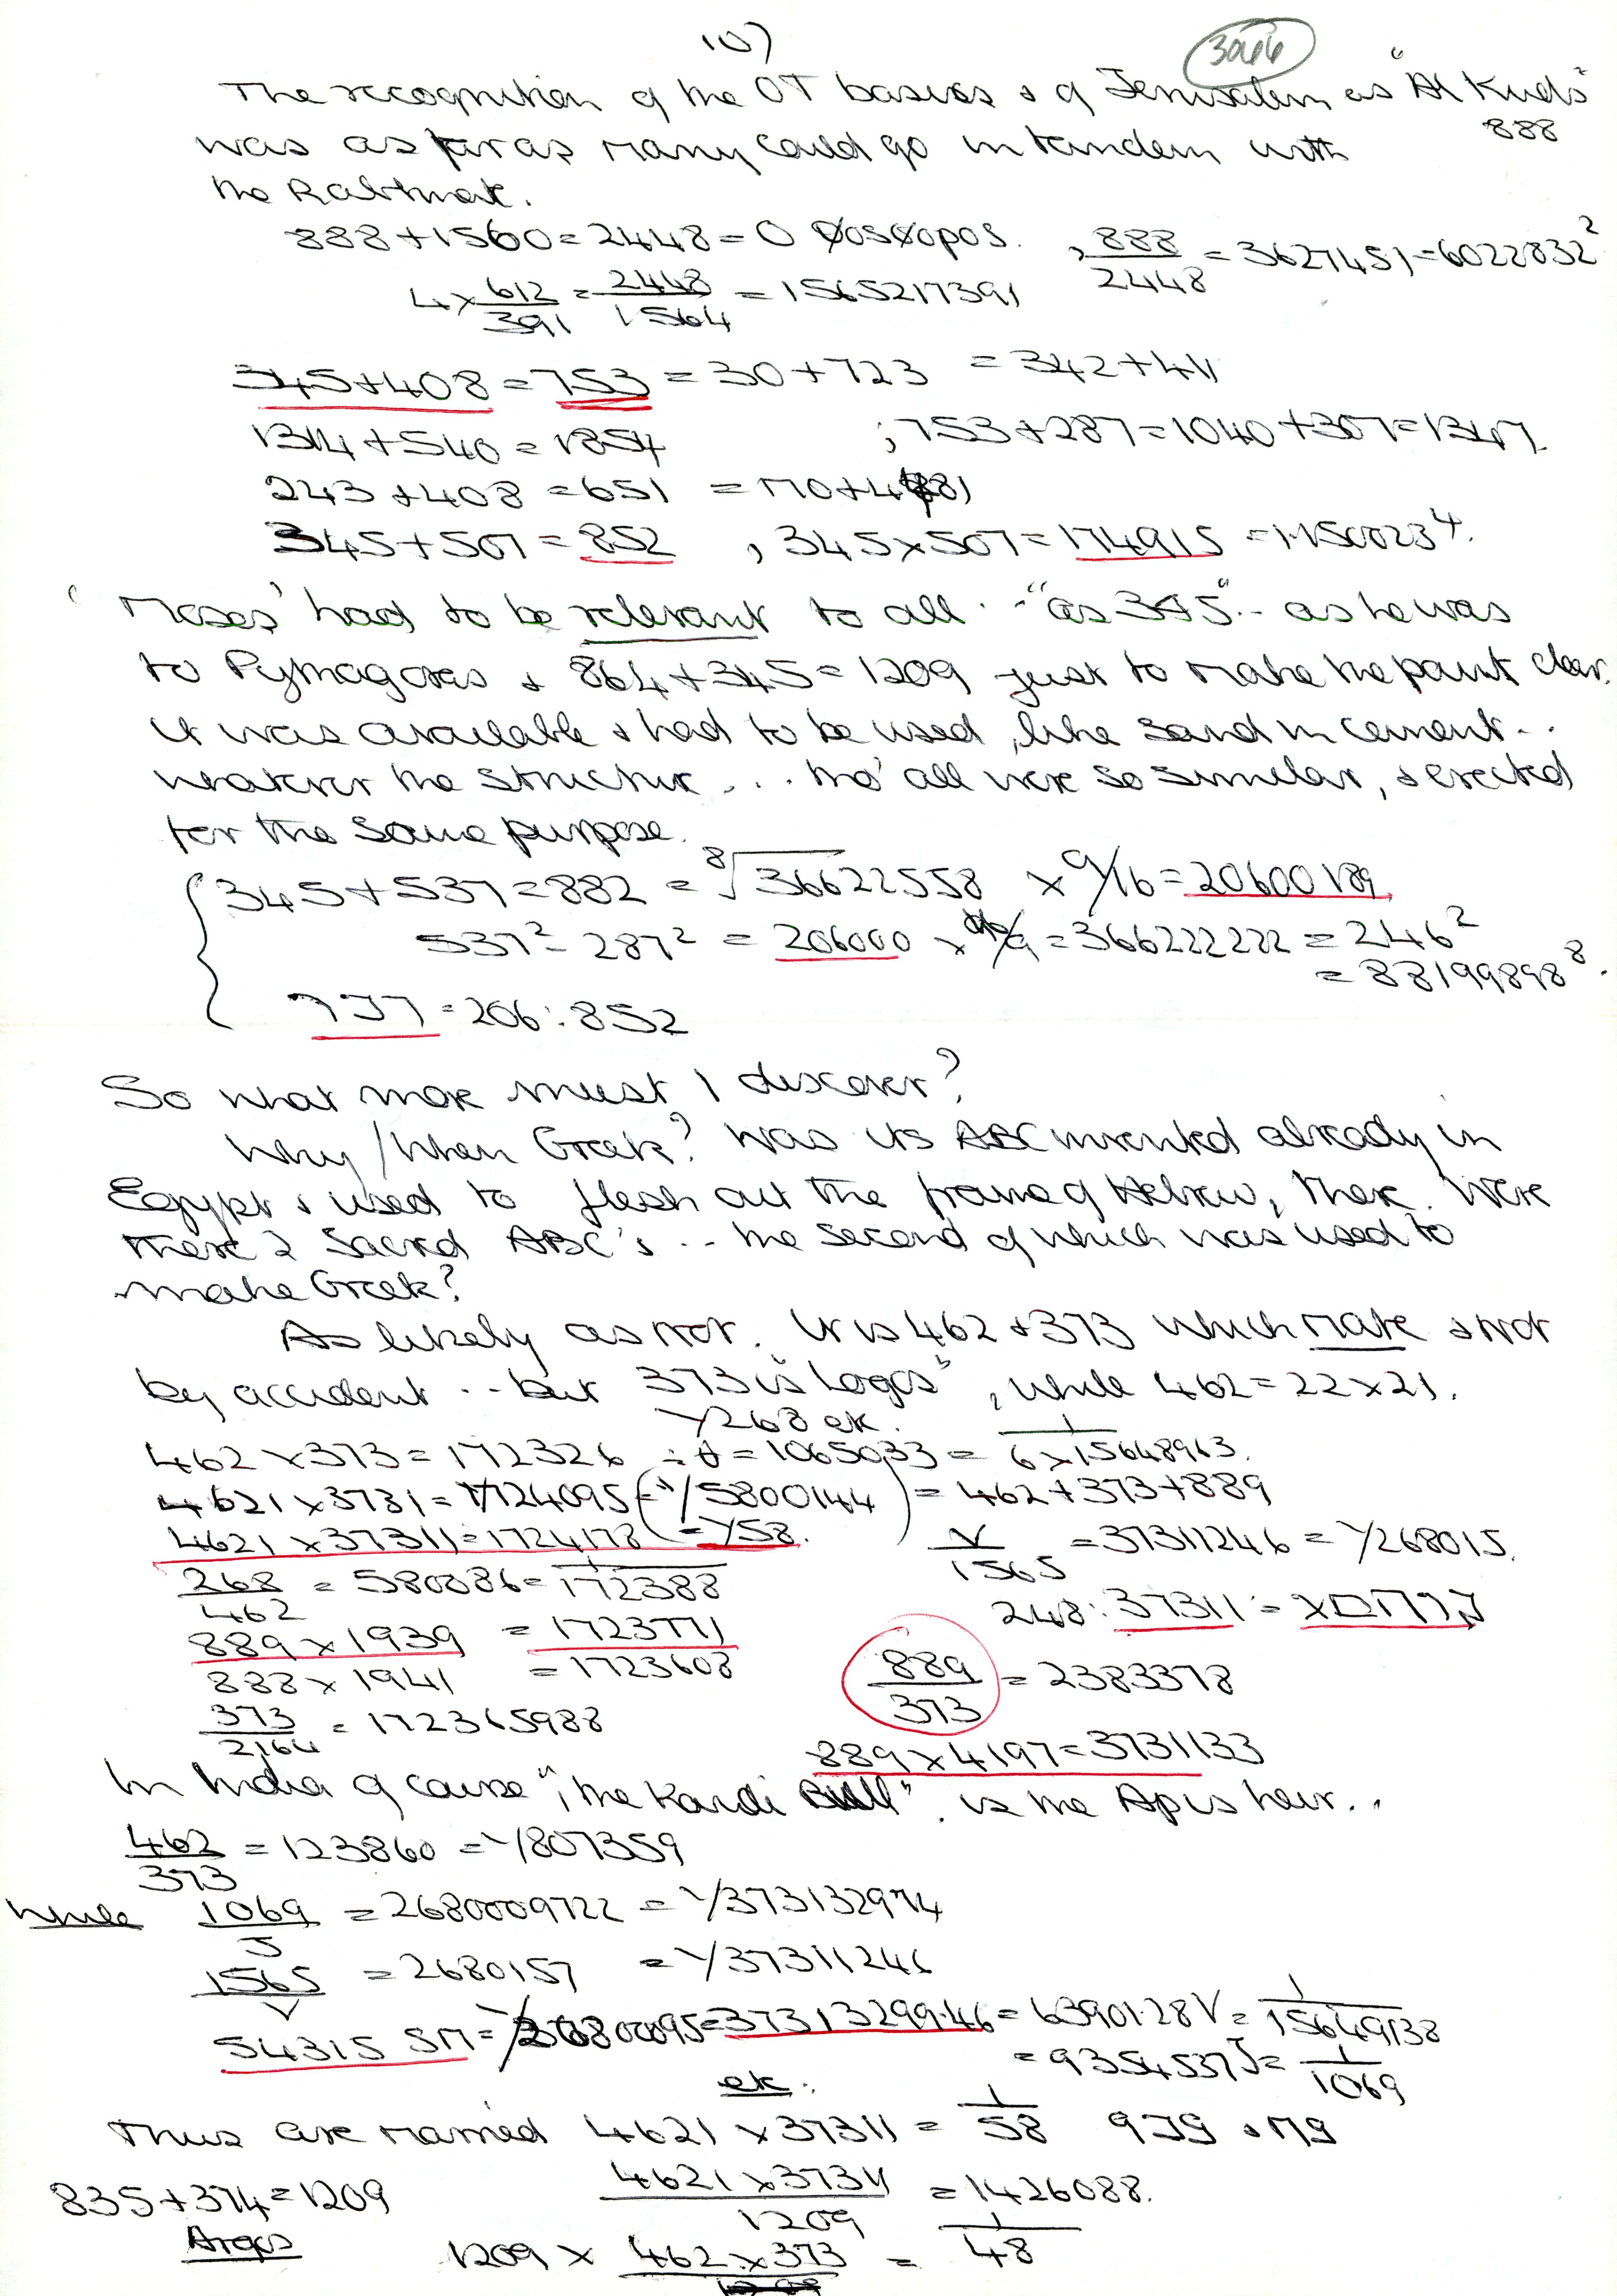 107
3066
The recognition of the OT basics & of Jerusalem as "Al Kuds"
888
was as far as many could go in tandem with
the
888 + 1560 = 2448 = O
, 888/2448 = 3627451 = 6022832²
4 × 612/391 = 2448/1564 = 1565217391
345 + 408 = 753 = 30 + 723 = 342 + 411
1314 + 540 = 1854 ; 753 + 287 = 1040 + 307 = 1347
243 + 408 = 651 = 170 + 481
345 + 507 = 852 , 345 × 507 = 174915 = 1·1500234
'Moses' had to be relevant to all.. "as 345".. as he was
to Pythagoras & 864 + 345 = 1209 just to make the point clear.
It was available & had to be used, like sand in cement...
whatever the structure... tho' all were so similar, & erected
for the same purpose.
345 + 537 = 882 = ⁸√36622558 × 9/16 = 20600189
537² - 287² = 206000 × 16/9 = 366222222 = 246²
= 88199898⁸.
= 206 : 852
So what more must I discover?
Why/When Greek? Was its ABC invented already in
Egypt & used to flesh out the frame of Hebrew, there. Were
there 2 Sacred ABC's .. the second of which was used to
make Greek?
As likely as not. It is 462 & 373 which mate & not
by accident .. but 373 is "Logos", while 462 = 22 × 21.
1/268 ek.
462 × 373 = 172326 ÷ = 1065033 = 1/6 × 15648963.
4621 × 3731 = 1724095 (= 1/5800144) = 462 + 373 + 889
4621 × 37311 = 1724178 = 1/58.
V/1565 = 37311246 = 1/268015.
268/462 = 580086 = 1/172388
248 : 37311 =
889 × 1939 = 1723771
888 × 1941 = 1723608
889/373 = 2383378
373/2164 = 172365988
889 × 4197 = 3731133
In India of course, "the Bull" is the Apis heir...
462/373 = 123860 = 1/807359
While 1069/5 = 2680009722 = 1/373132974
1565/V = 2680157 = 1/37311246
54315 = = 3731329946 = 6390128 V = 1/15649138
= 9354537 J = 1/1069
ek.
Thus are married 4621 × 37311 = 1/58
835 + 374 = 1209
4621 × 37311/1209 = 1426088.
Argos
1209 × 462 × 373 = 1/48